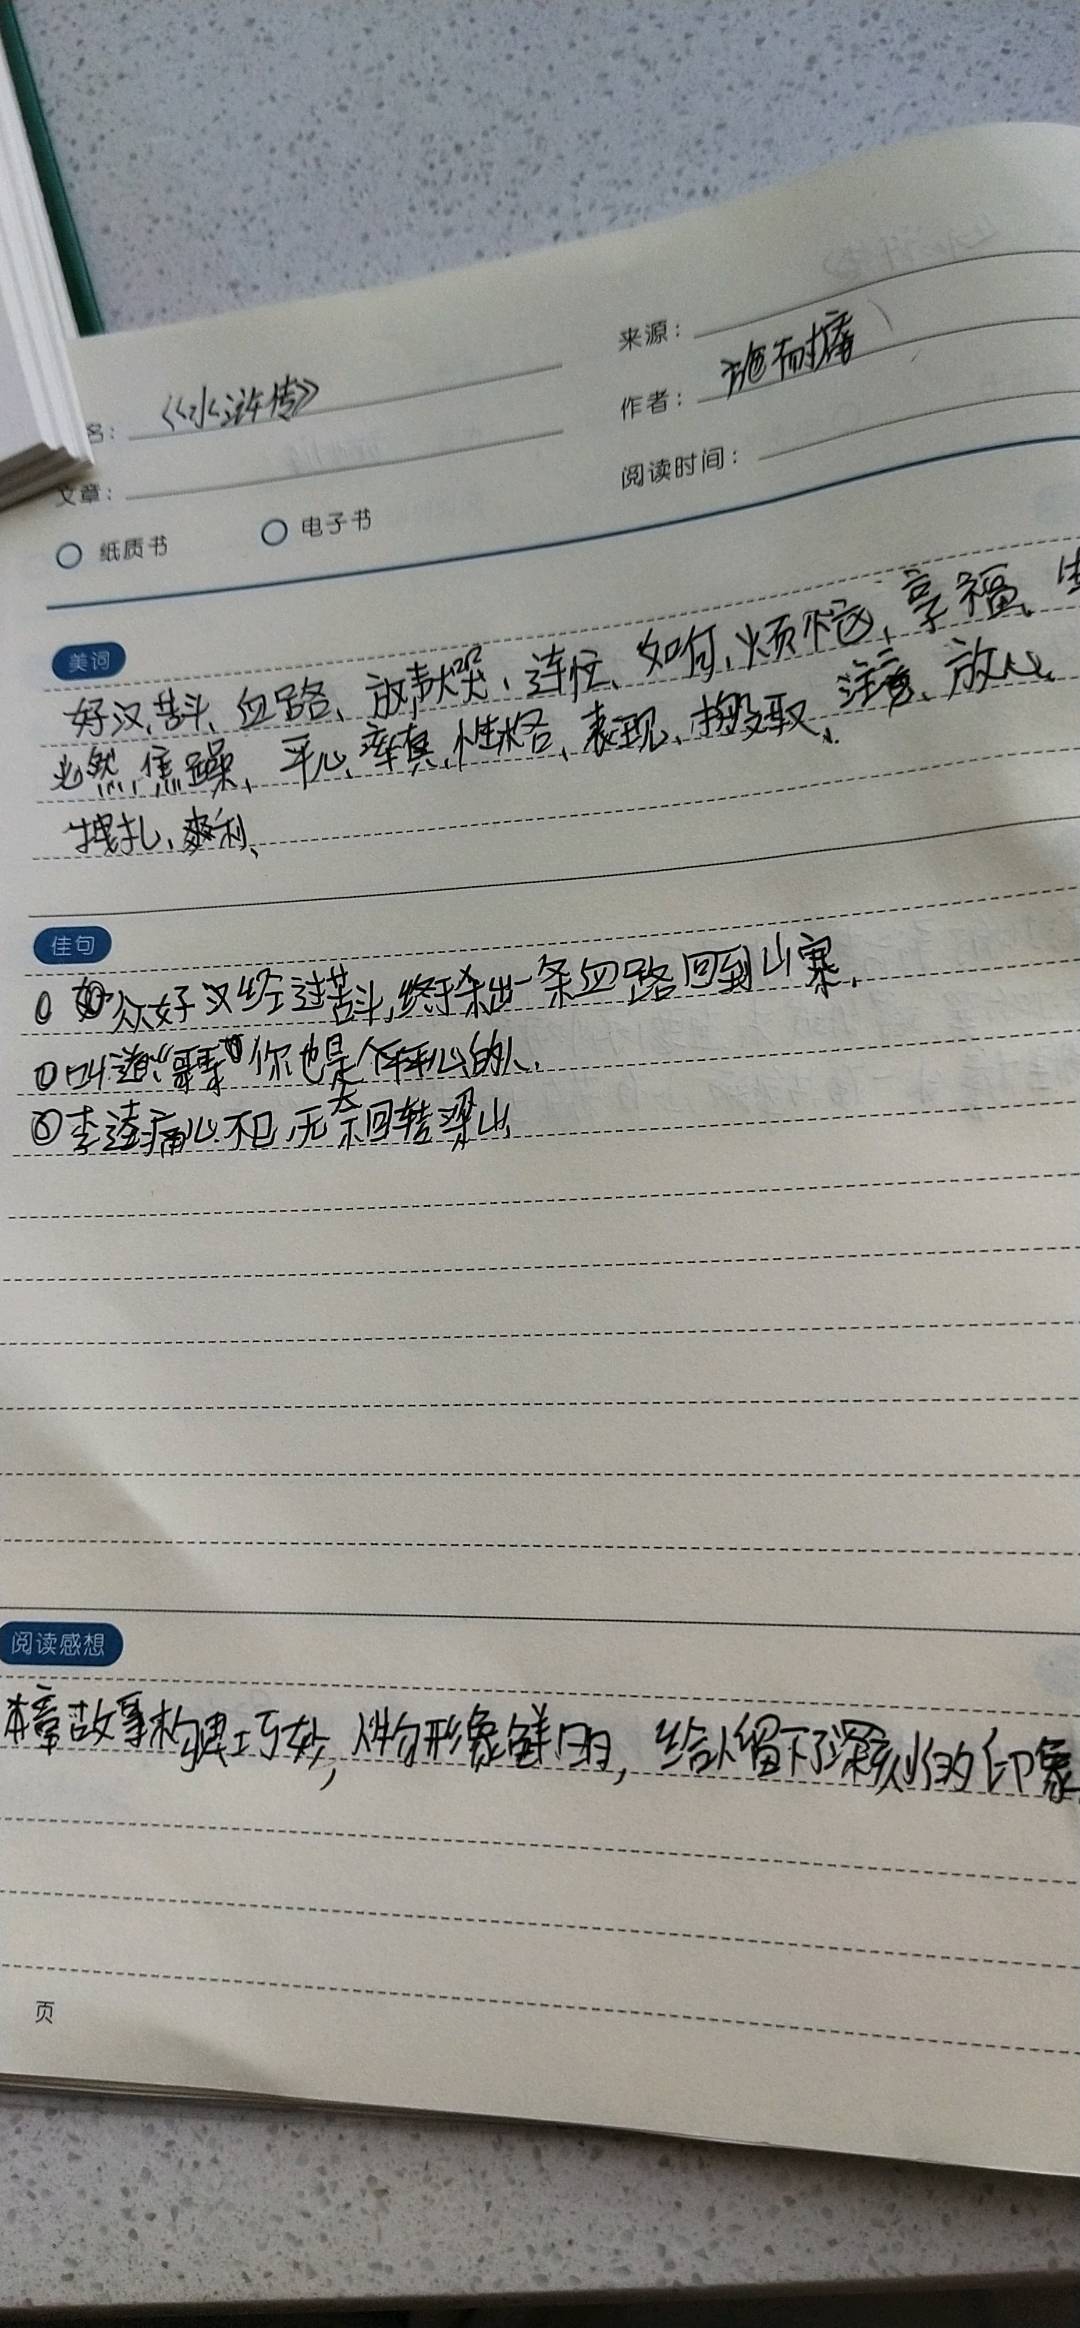 来源：
名： 《水浒传》
作者： 施耐庵
文章：
阅读时间：
纸质书 电子书
美词
好汉、苦斗、血路、放声大哭、连忙、如何、烦恼、享福、
必然、焦躁、平心、率真、性格、表现、搬取、注意、放心、
拽扎、爽利、
佳句
① 众好汉经过苦斗,终于杀出一条血路回到山寨.
②叫道:“哥哥 你也是个不平心的人.
③李逵痛心不已,无奈回转梁山.
阅读感想
本章故事构建巧妙,人物形象鲜明,给人留下了深刻的印象
页